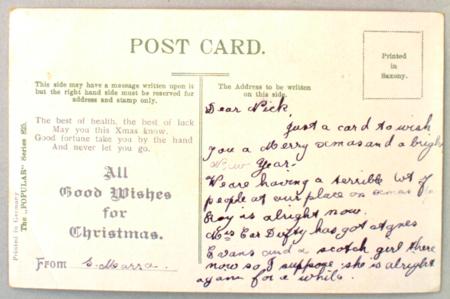 POST CARD.
Printed
in
Saxony.
This side may have a message written upon it
but the right hand side must be reserved for
address and stamp only.
The Address to be written
on this side.
The best of health, the best of luck
May you this Xmas know,
Good fortune take you by the hand
And never let you go.
All
Good Wishes
for
Christmas.
From
Printed in Germany
The "POPULAR" Series 825.
Dear Nick,
Just a card to wish
you a Merry Xmas and a bright
New Year.
We are having a terrible lot of
people at our place on Xmas
Roy is alright now.
Mrs Duffy has got Agnes
Evans and a scotch girl there
now so I suppose she is alright
again for a while.